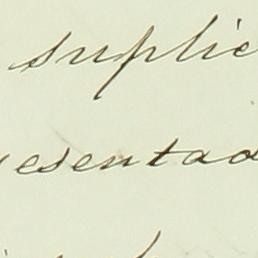 suplic
esentad